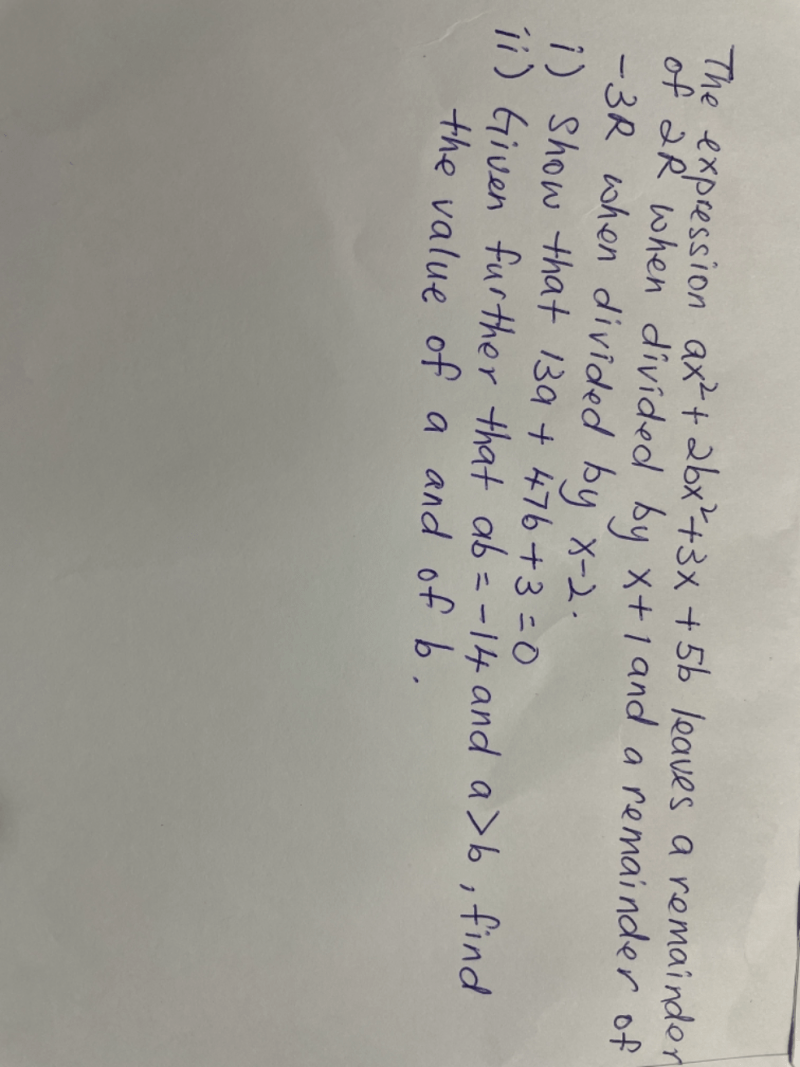 The expression ax²+2bx²+3x+5b leaves a remainder
of 2R when divided by x+1 and a remainder of
-3R when divided by x-2.
i) Show that 13a + 47b+3=0
ii) Given further that ab=-14 and a>b, find
the value of a and of b.